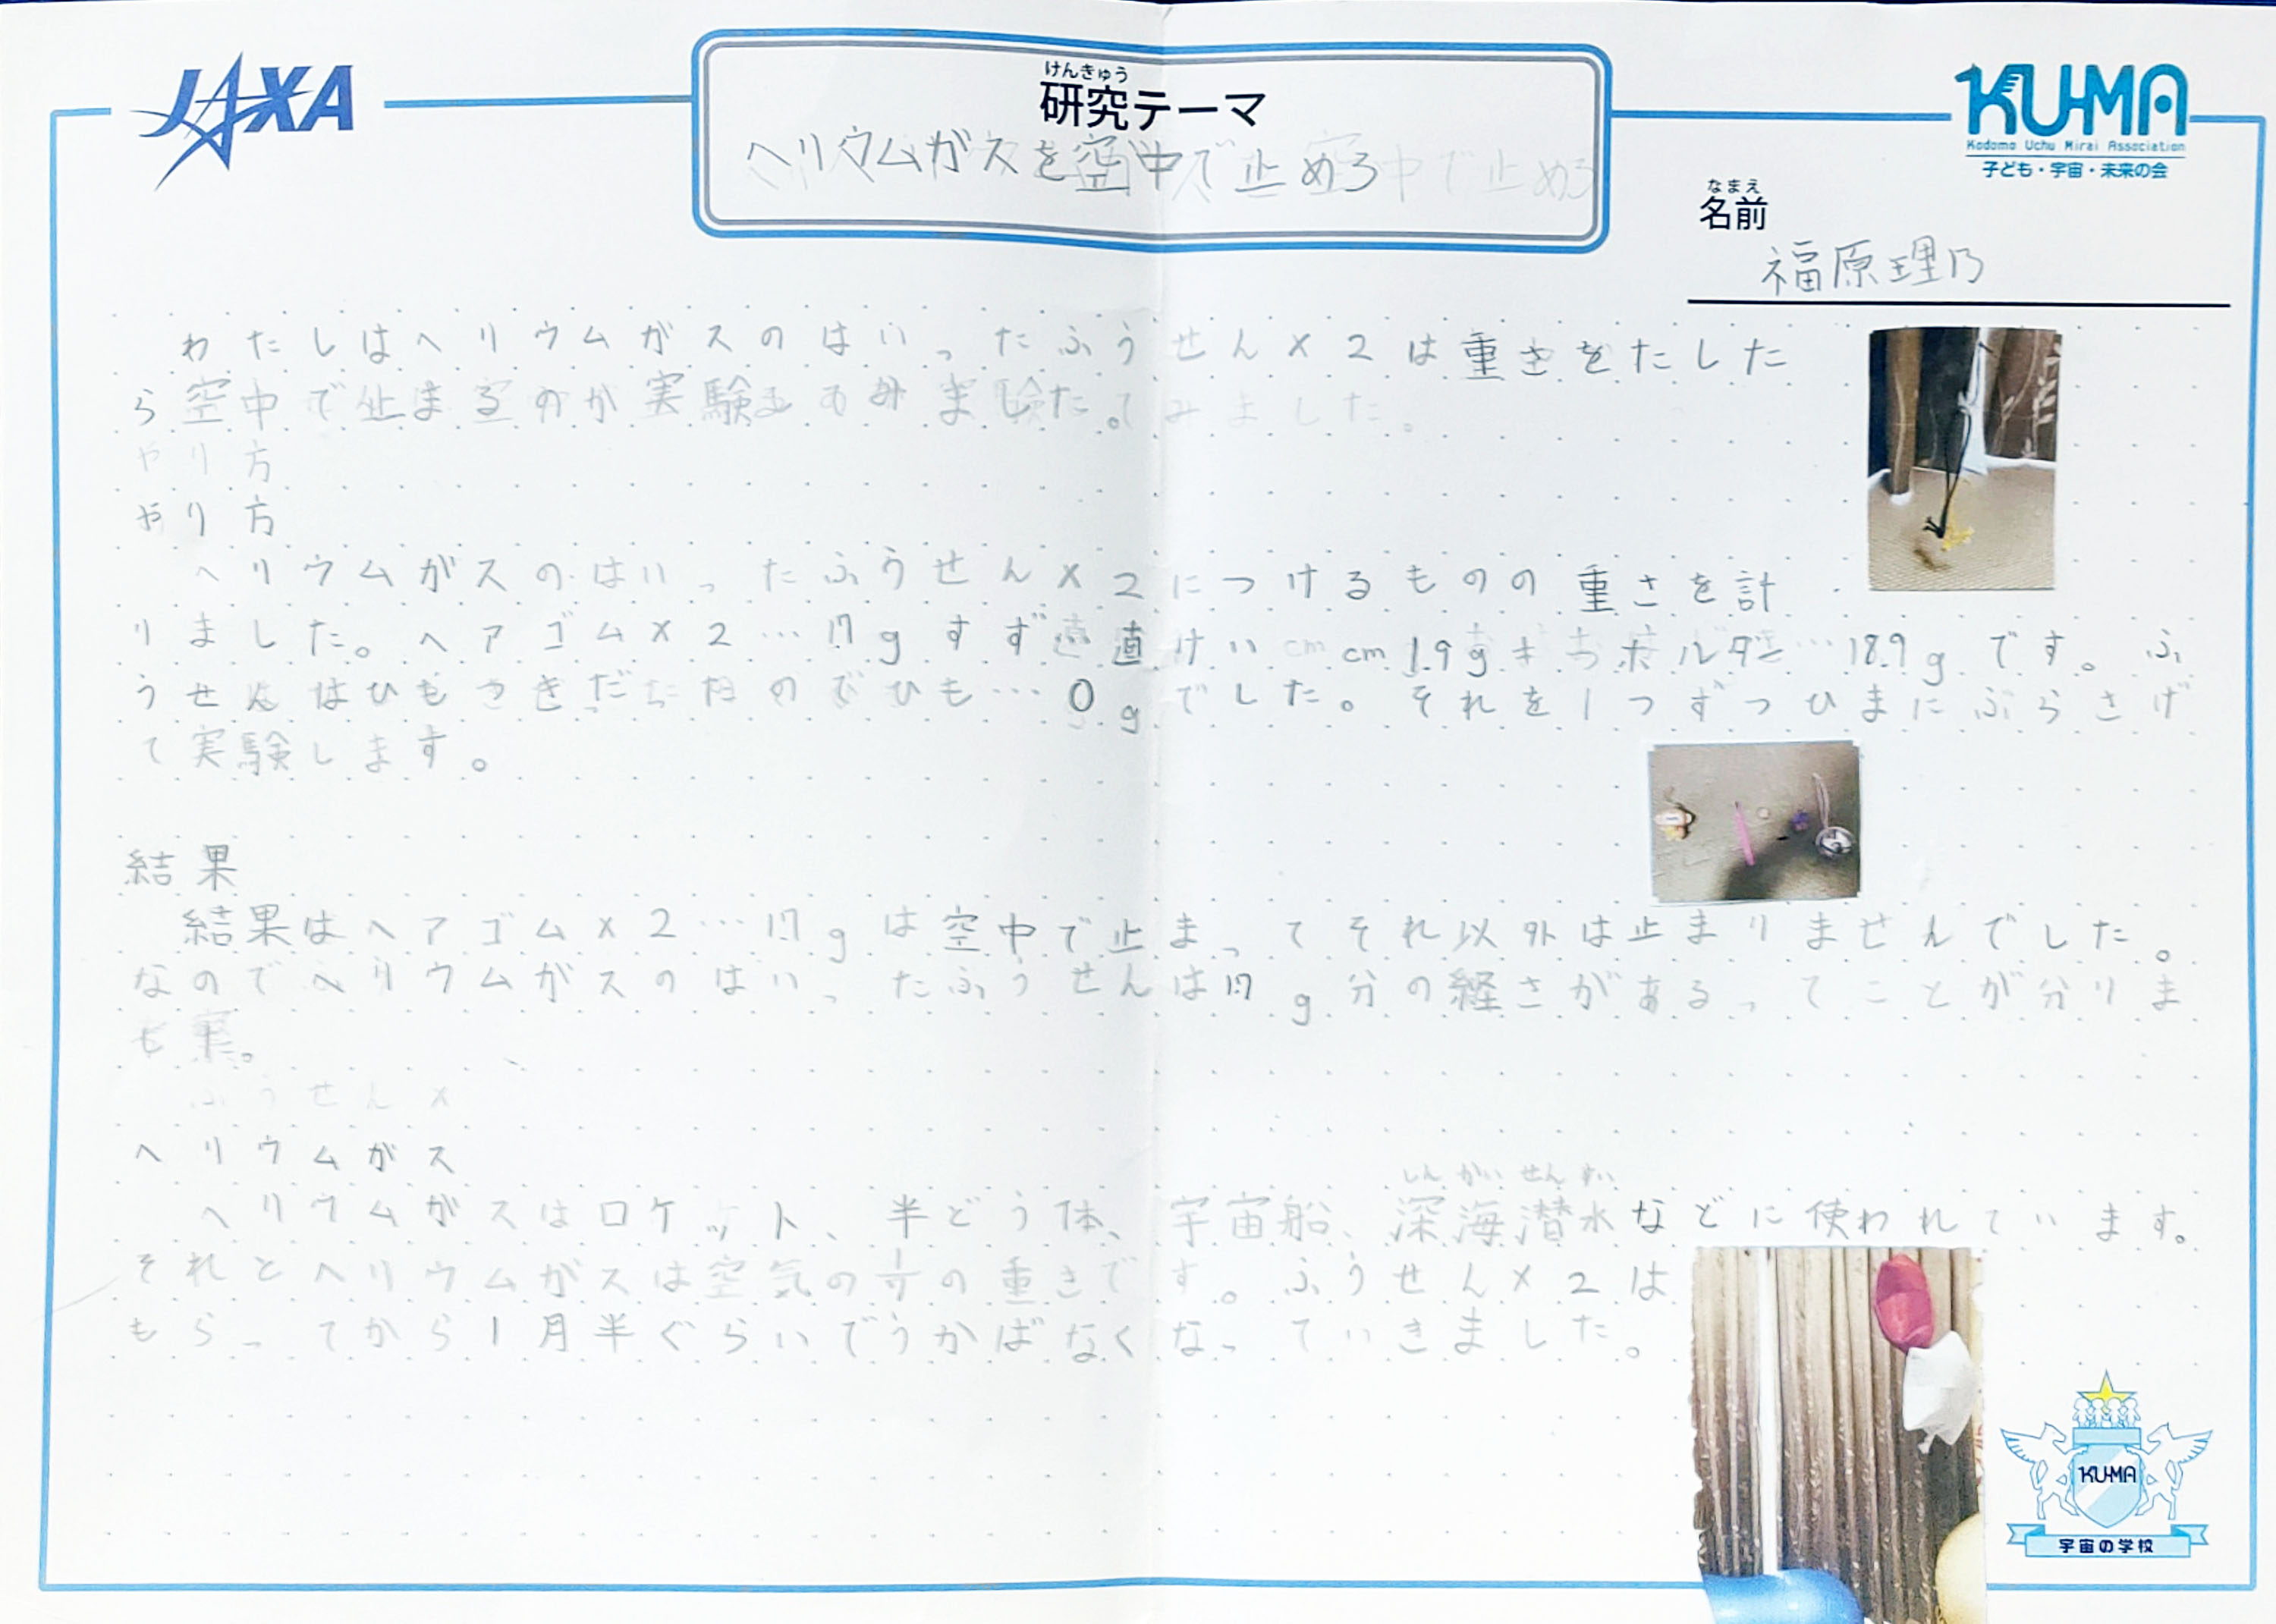 JAXA
けんきゅう
研究テーマ
ヘリウムガスを空中で止めろ
KU-MA
Kodomo Uchu Mirai Association
子ども・宇宙・未来の会
なまえ
名前
福原理乃
わたしはヘリウムガスのはいったふうせん×2は重さをたした
ら空中で止まるのか実験してみました。
やり方
ヘリウムガスのはいったふうせん×2につけるものの重さを計
りました。ヘアゴム×2…1.7gすず直けい cm 1.9g ホルダー…18.9gです。ふ
うせんはひもつきだったのでひも…0gでした。それを1つずつひもにぶらさげ
て実験します。
結果
結果はヘアゴム×2…1.7gは空中で止まってそれ以外は止まりませんでした。
なのでヘリウムガスのはいったふうせんは1.7g分の軽さがあるってことが分りま
した。
ヘリウムガス
しんかいせんすい
ヘリウムガスはロケット、半どう体、宇宙船、深海潜水などに使われています。
それとヘリウムガスは空気の の重さです。ふうせん×2は
もらってから1月半ぐらいでうかばなくなっていきました。
KU-MA
宇宙の学校